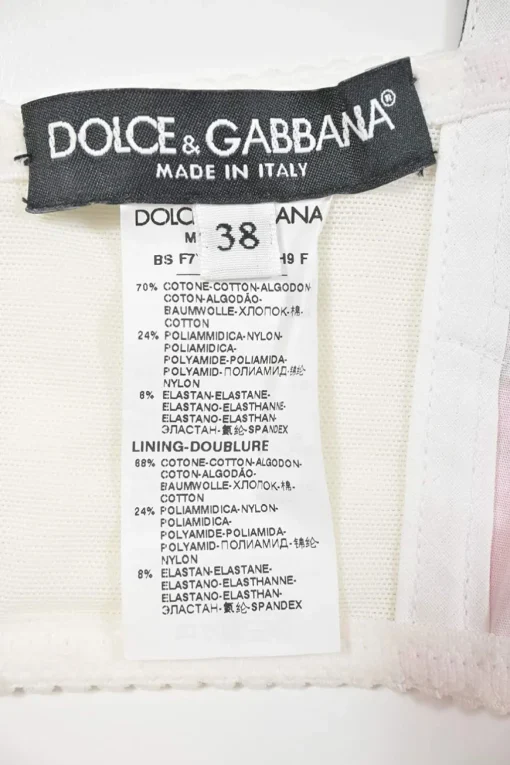 DOLCE & GABBANA®
MADE IN ITALY
38
70% COTONE-COTTON-ALGODON-
COTON-ALGODÃO-
BAUMWOLLE-ХЛОПОК-棉-
COTTON
24% POLIAMMIDICA-NYLON-
POLIAMIDICA-
POLYAMIDE-POLIAMIDA-
POLYAMID-ПОЛИАМИД-锦纶-
NYLON
6% ELASTAN-ELASTANE-
ELASTANO-ELASTHANNE-
ELASTANO-ELASTHAN-
ЭЛАСТАН-氨纶-SPANDEX
LINING-DOUBLURE
68% COTONE-COTTON-ALGODON-
COTON-ALGODÃO-
BAUMWOLLE-ХЛОПОК-棉-
COTTON
24% POLIAMMIDICA-NYLON-
POLIAMIDICA-
POLYAMIDE-POLIAMIDA-
POLYAMID-ПОЛИАМИД-锦纶-
NYLON
8% ELASTAN-ELASTANE-
ELASTANO-ELASTHANNE-
ELASTANO-ELASTHAN-
ЭЛАСТАН-氨纶-SPANDEX